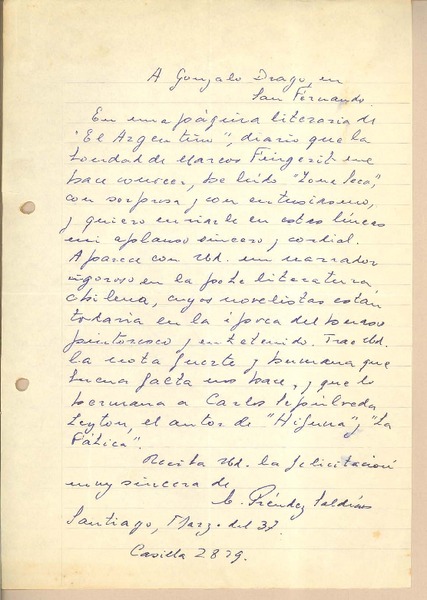 A Gonzalo Drago, en
San Fernando.
En una página literaria de
"El Argentino", diario que la
bondad de Marcos Fingerit me
hace conocer, he leído "Zona Seca",
con sorpresa y con entusiasmo,
y quiero enviarle en estas líneas
mi aplauso sincero y cordial.
Aparece con Ud. un narrador
vigoroso en la pobre literatura
chilena, cuyos novelistas están
todavía en la época del
pintoresco y entretenido. Trae Ud.
la nota fuerte y humana que
buena falta nos hace, y que lo
hermana a Carlos Sepúlveda
Leyton, el autor de "Hijuna" y "La
Fábrica".
Reciba Ud. la felicitación
muy sincera de
C. Préndez Saldías
Santiago, Marzo del 37.
Casilla 2839.